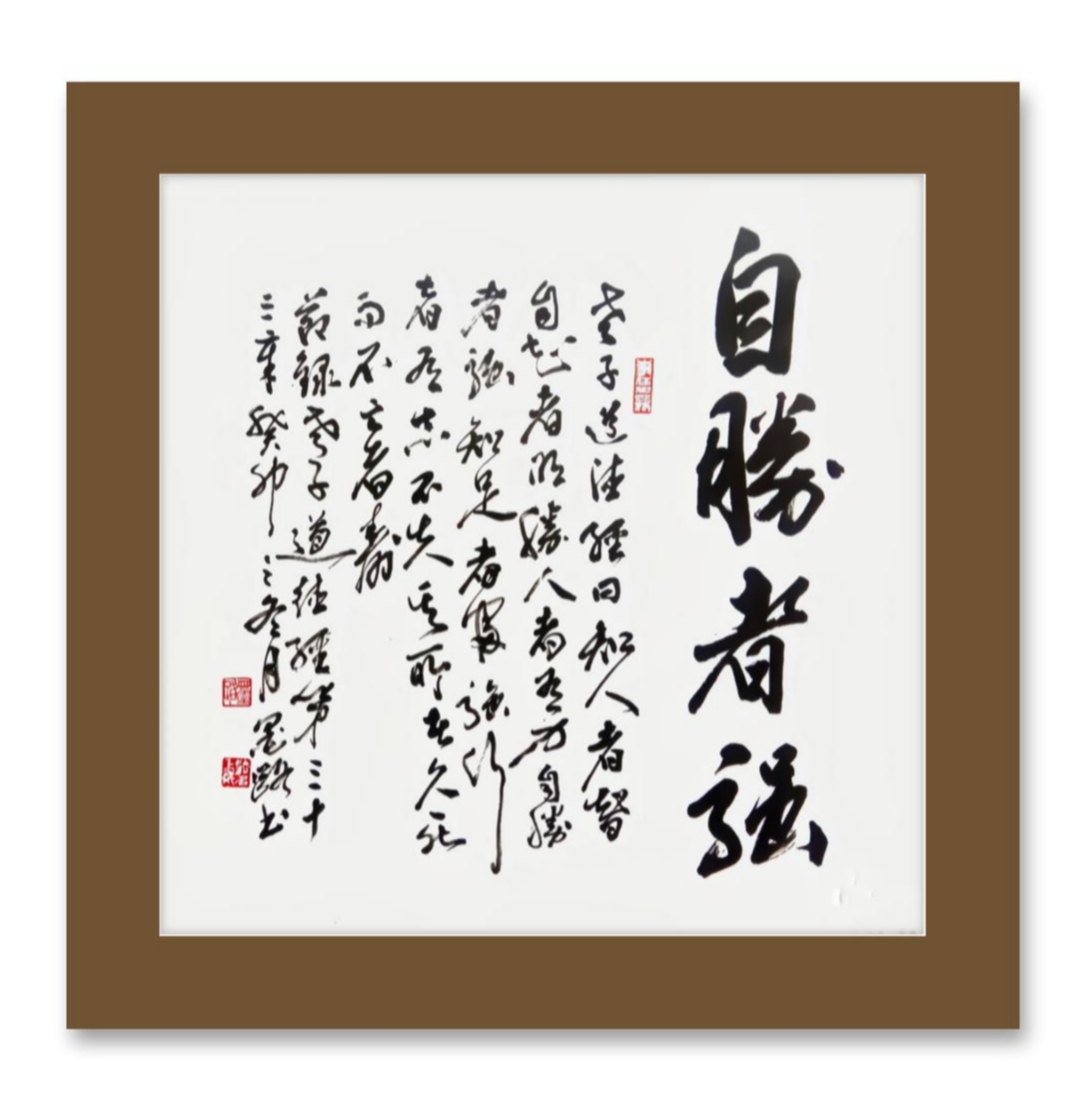 自勝者强
老子道德經曰知人者智
自知者明勝人者有力自勝
者强知足者富强行
者有志不失其所者久死
而不亡者壽
節録老子道德經第三十
三章癸卯之冬月墨路书